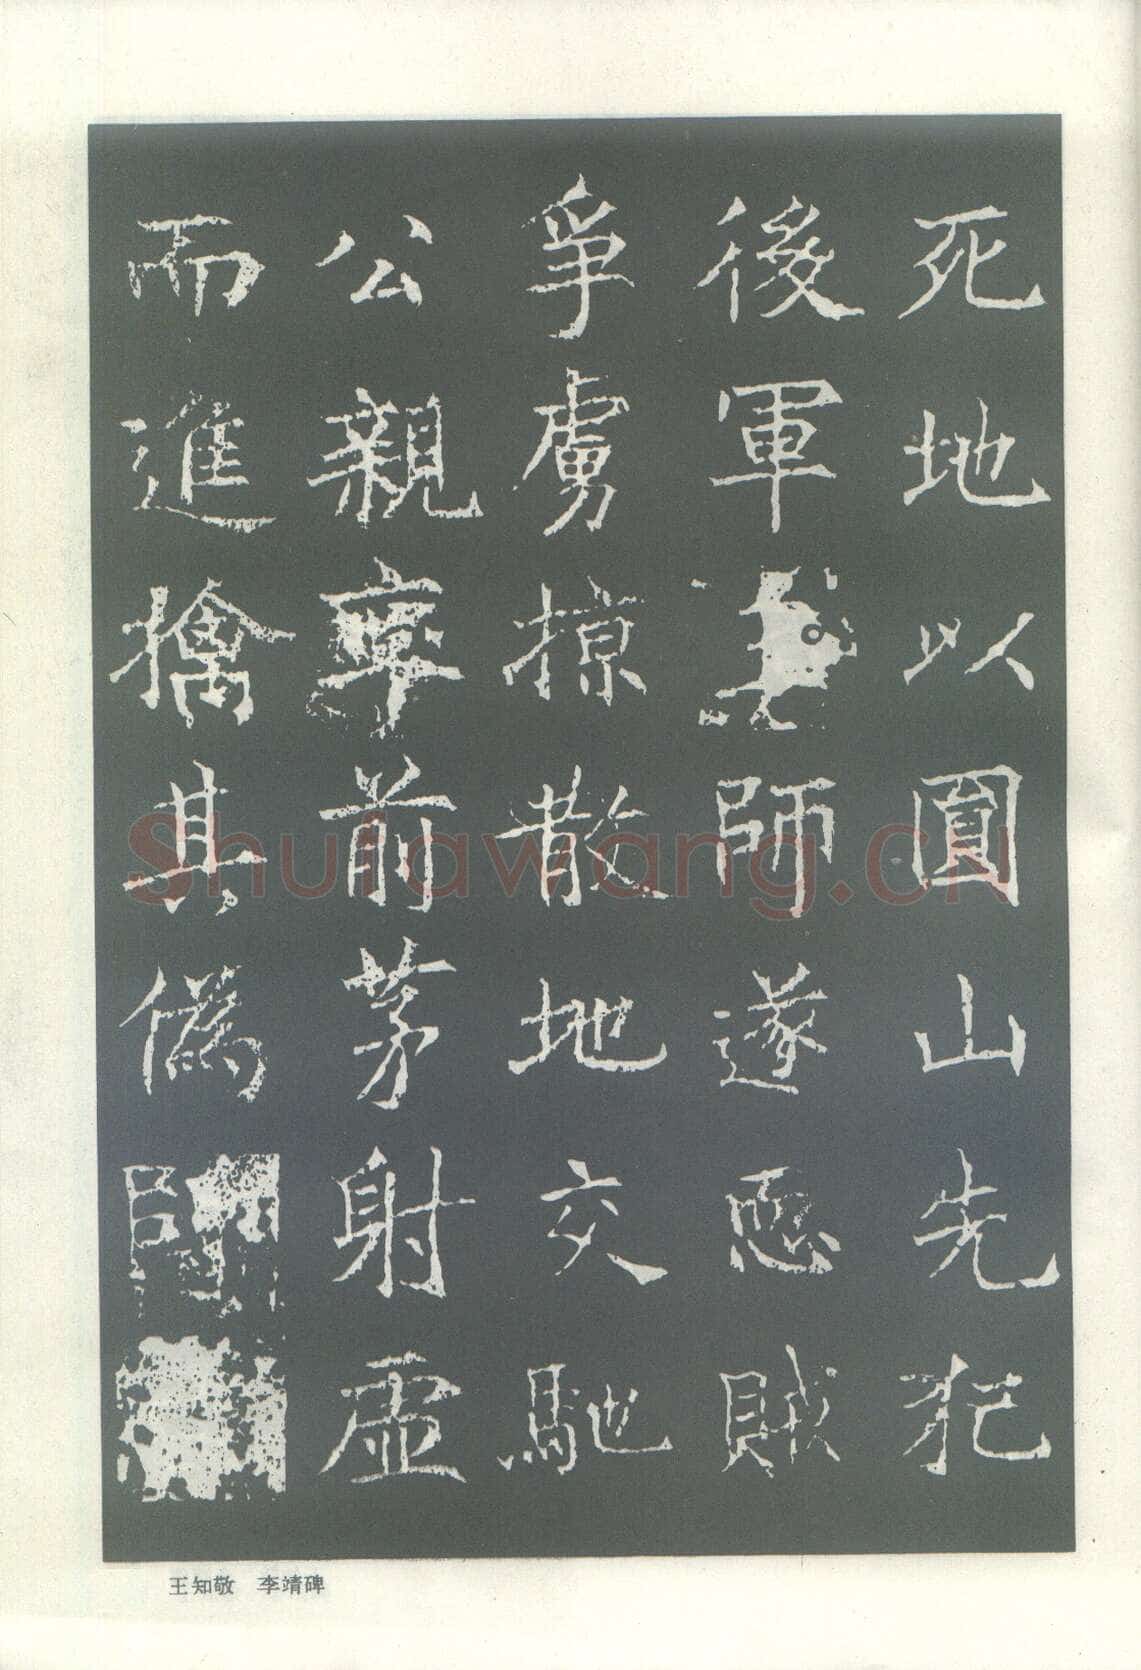 死地以圓山先犯
後軍師遂恧賊
爭虜掠散地交馳
公親率前茅射虛
而進擒其偽
王知敬 李靖碑
Shufawang.CN